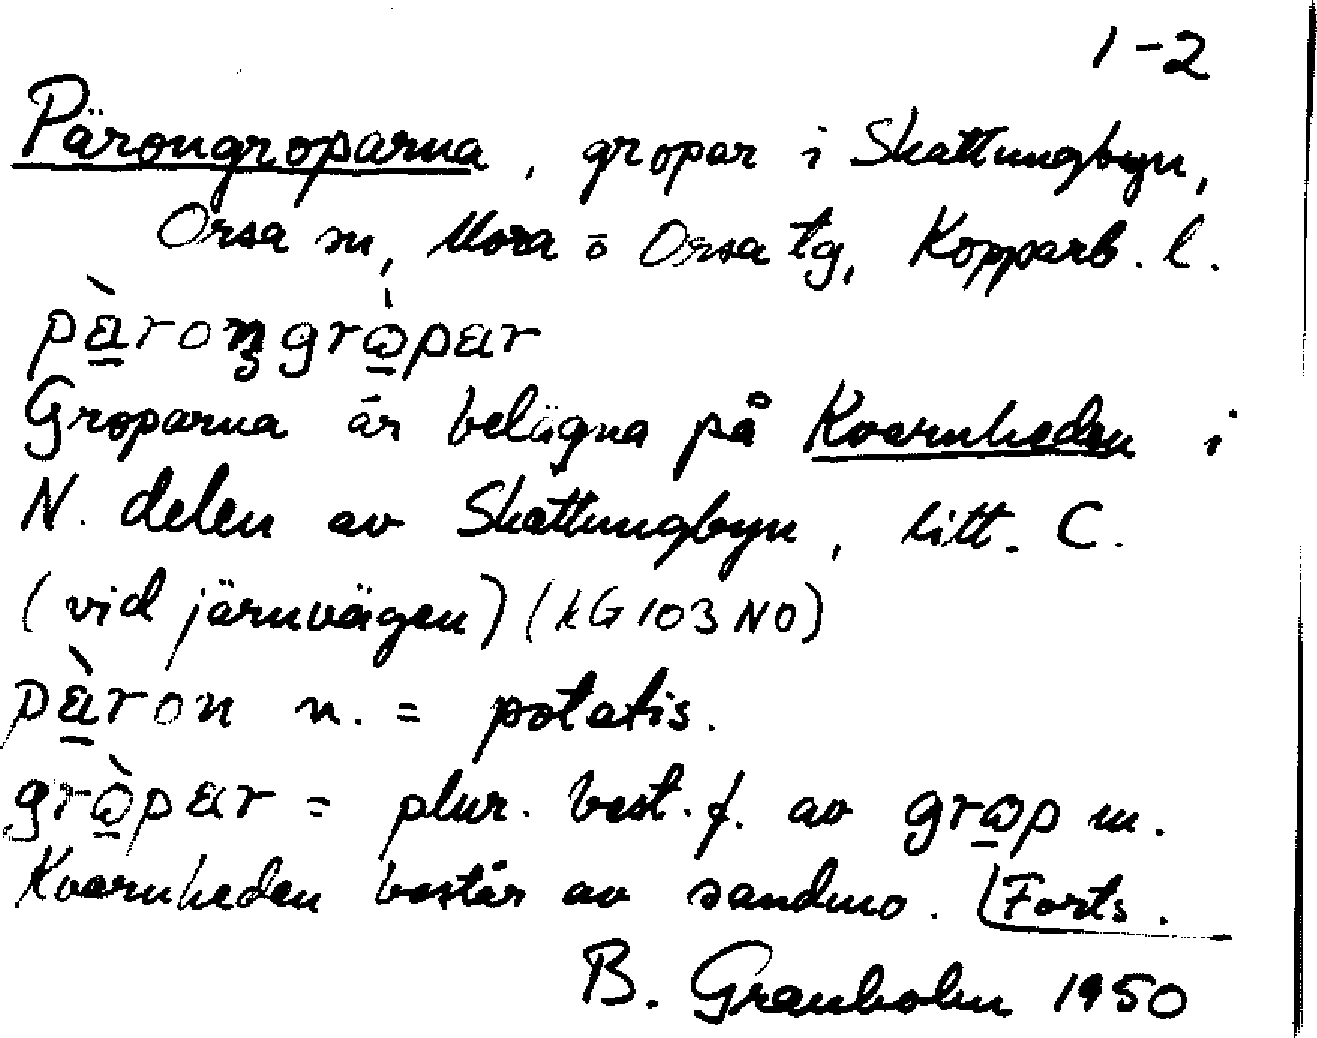 1-2
Pärongroparna, gropar i Skattungbyn,
Orsa sn, Mora o Orsa tg, Kopparb. l.
Groparna är belägna på Kvarnheden i
N. delen av Skattungbyn, litt. C.
(vid järnvägen) (kG 103 NO)
pä̀ron n. = potatis.
grὼ̲par = plur. best. f. av grω̲p m.
Kvarnheden består av sandmo. Forts.
B. Granholm 1950